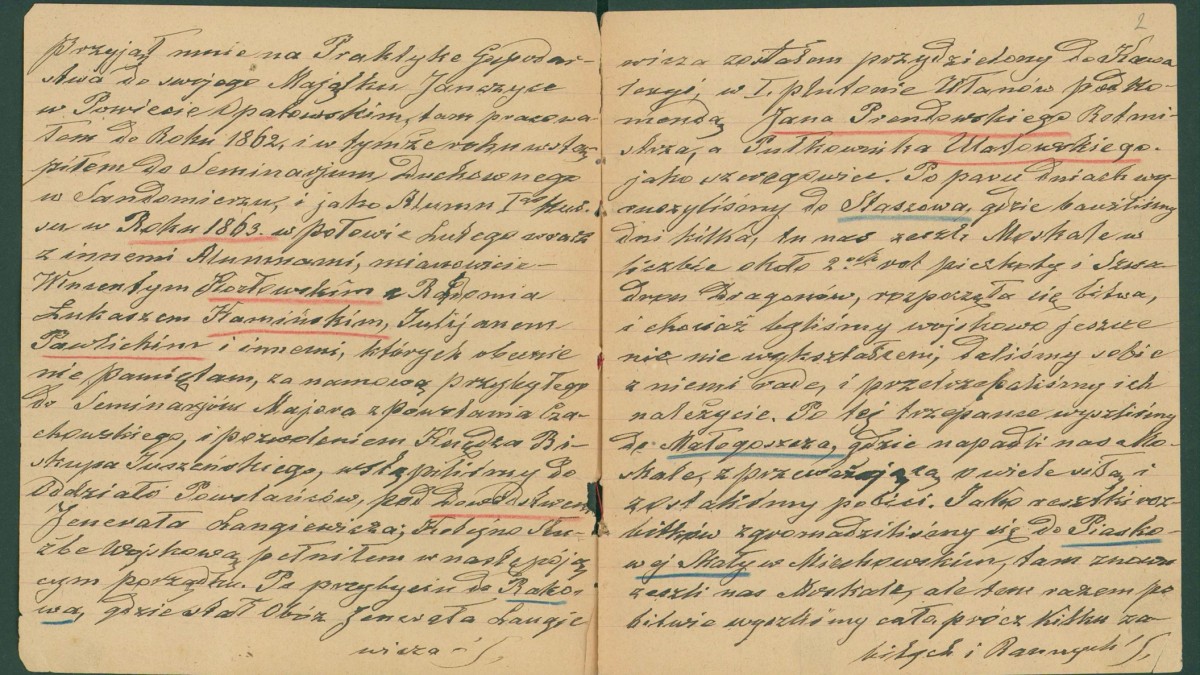 przyjął mnie na Praktykę Gospodar-
stwa do swojego Majątku Janczyce
w Powiecie Opatowskim, tam pracowa-
łem do Roku 1862, i w tymże roku wstą-
piłem do Seminarjum Duchownego
w Sandomierzu, i jako Alumn Igo kur-
su w Roku 1863. w połowie Lutego wraz
z innemi Alumnami, mianowicie-
Wincentym Kozłowskim z Radomia
Łukaszem Kamińskim, Julijanem
Pawlickim i innemi, których obecnie
nie pamiętam, za namową przybyłego
do Seminarjum Majora z powstania Cza-
chowskiego, i pozwoleniem Księdza Bi-
skupa Juszeńskiego, wstąpiliśmy do
Oddziału Powstańców, pod Dowództwem
Jenerała Langiewicza; Kolejno Słu-
żbę Wojskową pełniłem w następują-
cym porządku. Po przybyciu do Rako-
wa, gdzie stał Obóz Jenerała Langie
wicza
2
wicza zostałem przydzielony do Kawa
leryi, w I. plutonie Ułanów pod ko-
mendą Jana Prendowskiego Rotmi-
strza, a Pułkownika Ulatowskiego.
jako szeregowiec. Po paru dniach wy
ruszyliśmy do Staszowa, gdzie bawiliśmy
dni kilka, tu nas zeszli Moskale w
liczbie około 2 rot piechoty i Szwa
dron Dragonów, rozpoczęła się bitwa,
i chociaż byliśmy wojskowo jeszcze
nic nie wykształceni, daliśmy sobie
z niemi radę, i przetrzepaliśmy ich
należycie. Po tej trzepance wyszliśmy
do Małogoszcza, gdzie napadli nas Mo-
skale, z przeważającą o wiele siłą i
zostaliśmy pobici. Jako resztki roz-
bitków zgromadziliśmy się do Piasko-
wej Skały w Miechowskim, tam znowu
zeszli nas Moskale, ale tem razem po
bitwie wyszliśmy cało, prócz kilku za
bitych i Rannych